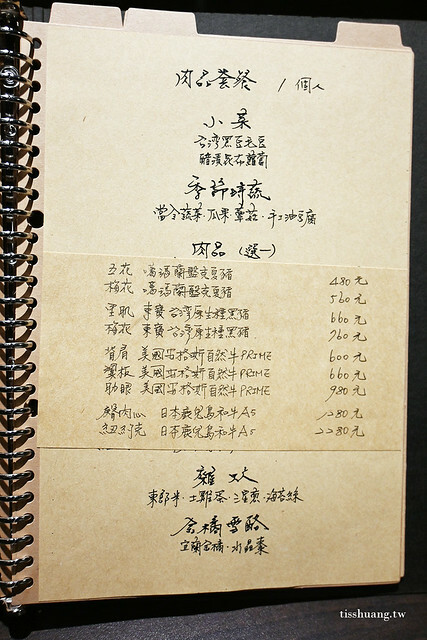 肉品套餐 / 個人
小菜
台灣黑豆毛豆
醋漬昆布蘿蔔
季節時蔬
當令蔬菜·瓜果蕈菇·手工油豆腐
肉品 (選一)
五花 噶瑪蘭黑豚 480元
梅花 噶瑪蘭黑豚 560元
里肌 東寶台灣原生種黑豬 660元
梅花 東寶台灣原生種黑豬 760元
背肩 美國 自然牛PRIME 600元
翼板 美國 自然牛PRIME 660元
肋眼 美國 自然牛PRIME 980元
臀肉心 日本鹿兒島和牛A5 1280元
紐約克 日本鹿兒島和牛A5 2280元
雜炊
東部米·土雞蛋·三星蔥·海苔絲
金橘雪酪
宜蘭金橘·水晶棗
tisshuang.tw